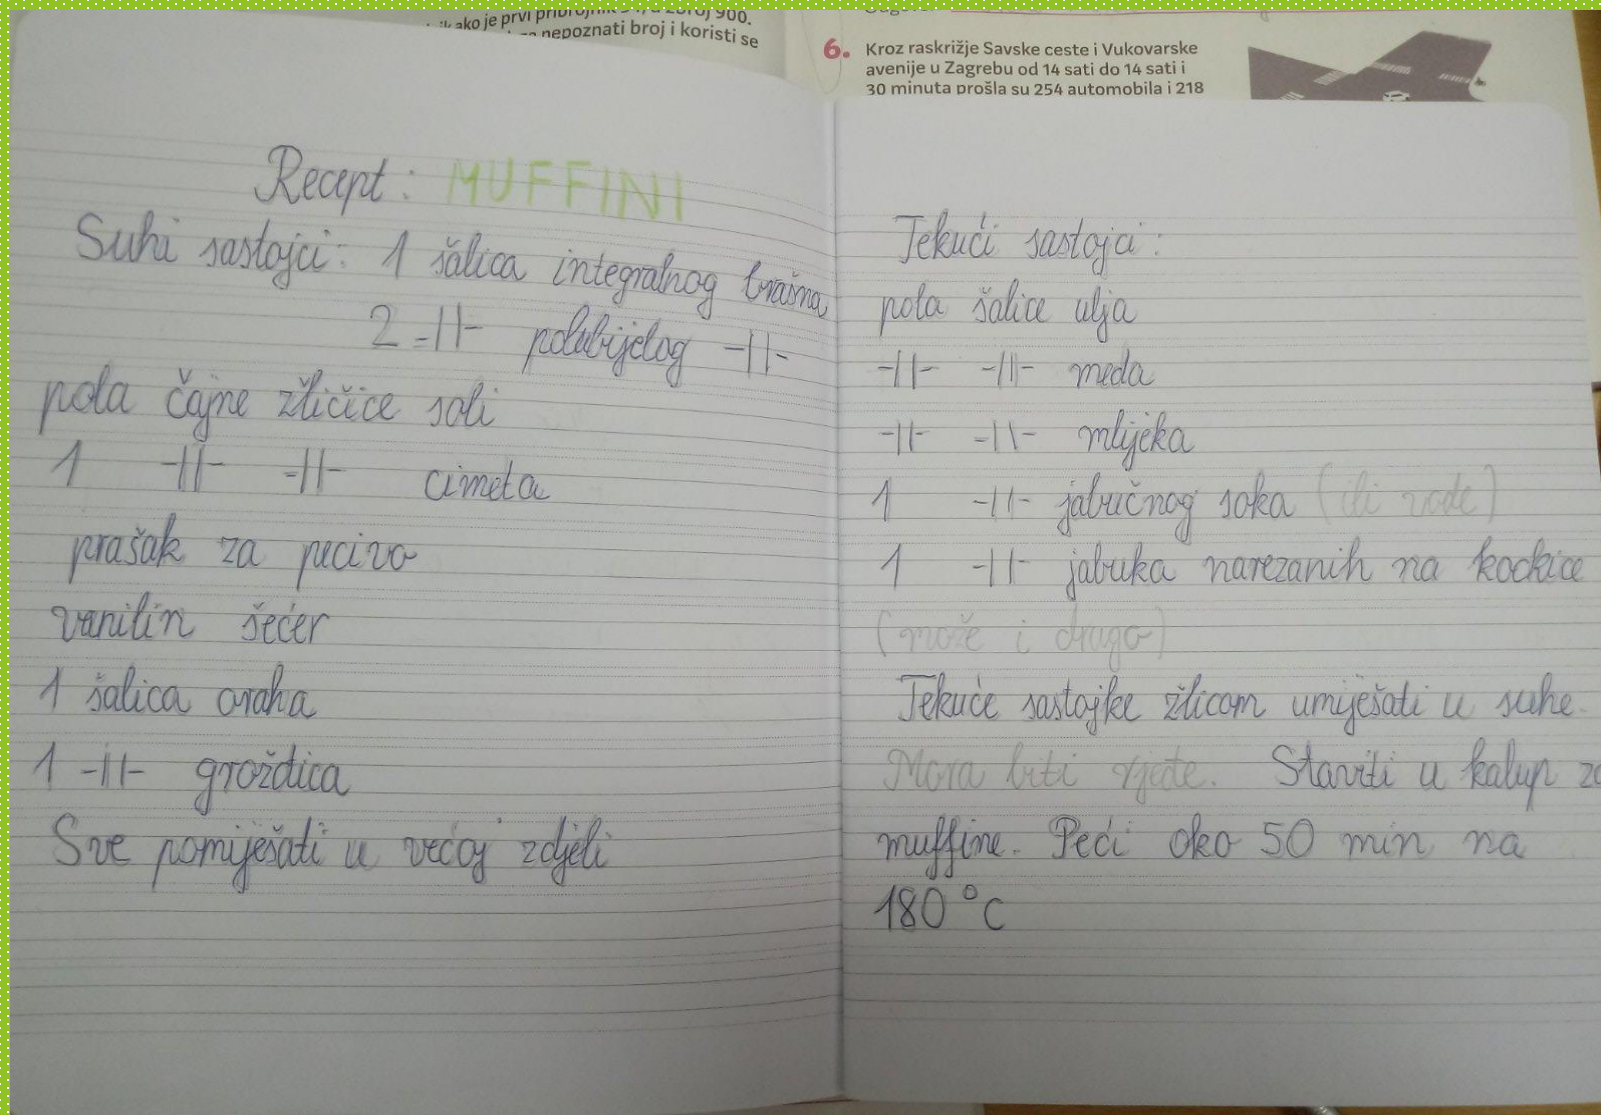 ako je prvi pribrojnik
broj 900.
nepoznati broj i koristi se
6. Kroz raskrižje Savske ceste i Vukovarske
avenije u Zagrebu od 14 sati do 14 sati i
30 minuta prošla su 254 automobila i 218
Recept: MUFFINI
Suhi sastojci: 1 šalica integralnog brašna
2 -||- polubijelog -||-
pola čajne žličice soli
1 -||- -||- cimeta
prašak za pecivo
vanilin šećer
1 šalica oraha
1 -||- grožđica
Sve pomiješati u većoj zdjeli
Tekući sastojci:
pola šalice ulja
-||- -||- meda
-||- -||- mlijeka
1 -||- jabučnog soka (ili vode)
1 -||- jabuka narezanih na kockice
(može i drugo)
Tekuće sastojke žlicom umiješati u suhe.
Mora biti rjeđe. Staviti u kalup za
muffine. Peći oko 50 min na
180 °C